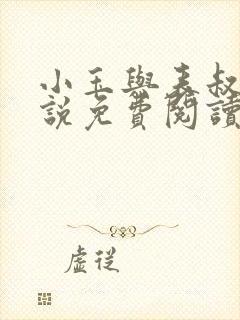 小玉與表叔
說免費閱讀
虛從